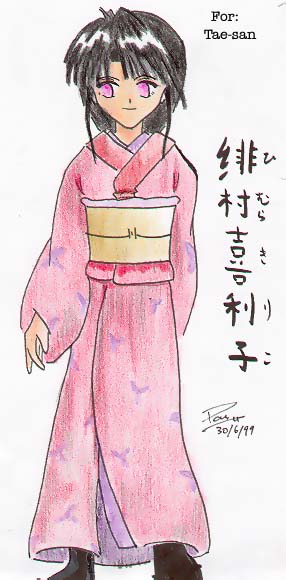 For:
Tae-san
緋村喜利子
ひむらきりこ
30/6/99